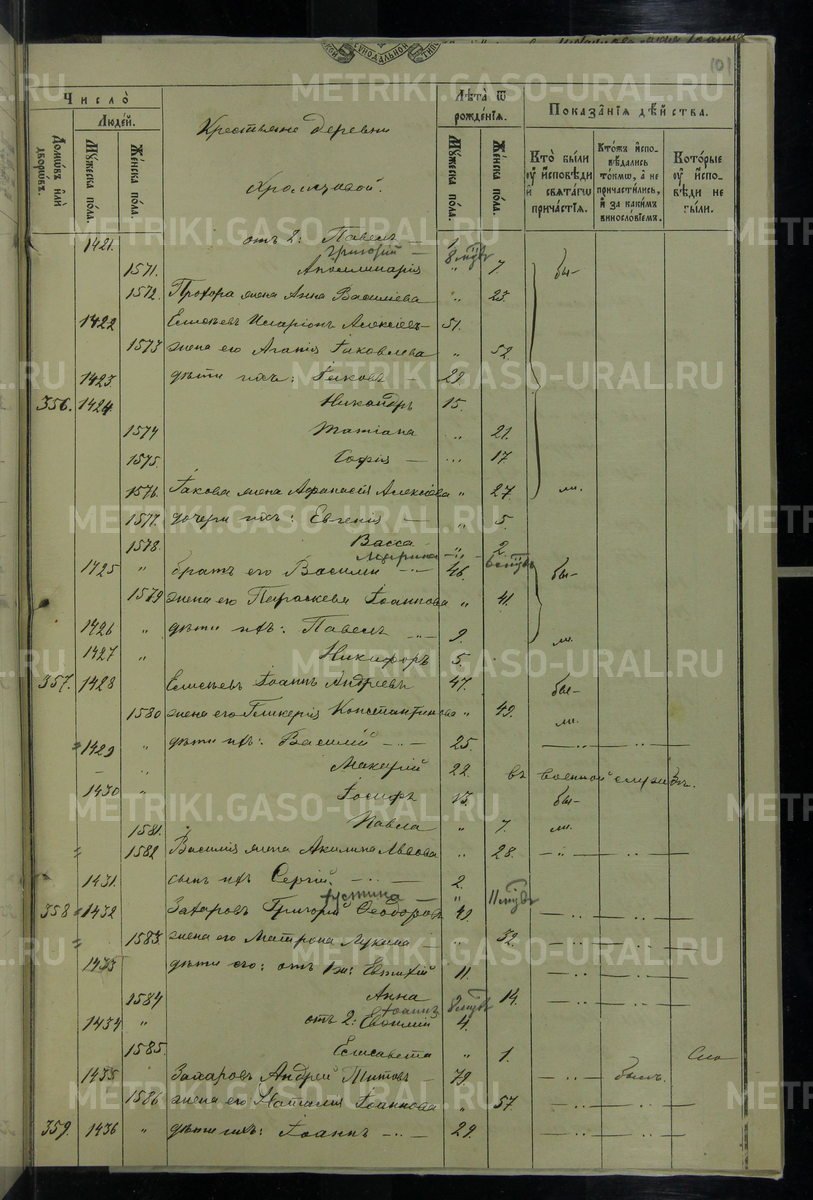 METRIKI.GASO-URAL.RU
101
Число̀
Людéй.
Домѡвъ илѝ дворѡвъ.
Мꙋжеска пóла.
Жéнска пóла.
Крестьяне деревни
Храмцовой.
Лѣта̀ ѿ рождéнїѧ.
Мꙋжеска пóла.
Жéнска пóла.
Показа̑нїѧ дѣ́йства.
Ктò бы́ли ᲂу҆ и҆сповѣди и҆ свѧта́гѡ прича́стїѧ.
Ктóжъ и҆спо­вѣдались тóкмѡ, а҆ не причасти́лись, и҆ за каки́мъ винослóвїемъ.
Котóрые ᲂу҆ и҆спо­вѣди не бы́ли.
1421. отъ 2: Павелъ — 1
Григорий — 8 мцъ
1571. Аполлинарія " 7 бы-
1572. Прохора жена Анна Василіева " 23.
1422 Елисѣевъ Иларіонъ Алексѣевъ 51.
1573 жена его Агапія Іаковлева " 52
1423 дѣти ихъ: Іаковъ — 29.
356. 1424. Никандръ 15.
1574 Татіана " 21.
1575. Софія — ... 17
1576. Іакова жена Афанасія Алексіева " 27 ли.
1577. дочери ихъ: Евгенія — " 5.
1578. Васса — " — 2.
Марина
1425 " братъ его Василій — 46. бы-
1579 жена его Параскева Іоаннова " 41.
1426 " дѣти ихъ: Павелъ — " — 9. ли.
1427 " Никифоръ 5.
357. 1428 Елисѣевъ Іоаннъ Андреевъ 47. бы-
1580 жена его Гликерія Константинова " 49. ли.
1429 " дѣти ихъ: Василій — 25. — " — " —
— " Макарій 22 въ военной службѣ.
1430 " Іосифъ 13. бы-
1581. " Павла " 7. ли.
1582 Василія жена Акилина Львова " 28. — " — " —
1431. сынъ ихъ Сергій. 2.
Іустина — " 11 мцъ
358 1432 Захаровъ Григорій Ѳеодоровъ 49. — " — " —
1583. жена его Матрона Лукина " 32. — " — " —
1433 дѣти его: отъ 1 ж: Евтихій 11. — " — " —
1584 Анна 14. — " — " —
Іоаннъ 8 мцъ
1434 " отъ 2: 4.
1585. Елисавета " 1.
1435 Захаровъ Андрей Титовъ 79. — " — былъ.
1586 жена его Наталія Іоаннова " 57. — " — " —
359. 1436 " дѣти ихъ: Іоаннъ — " — 29. — " — " —